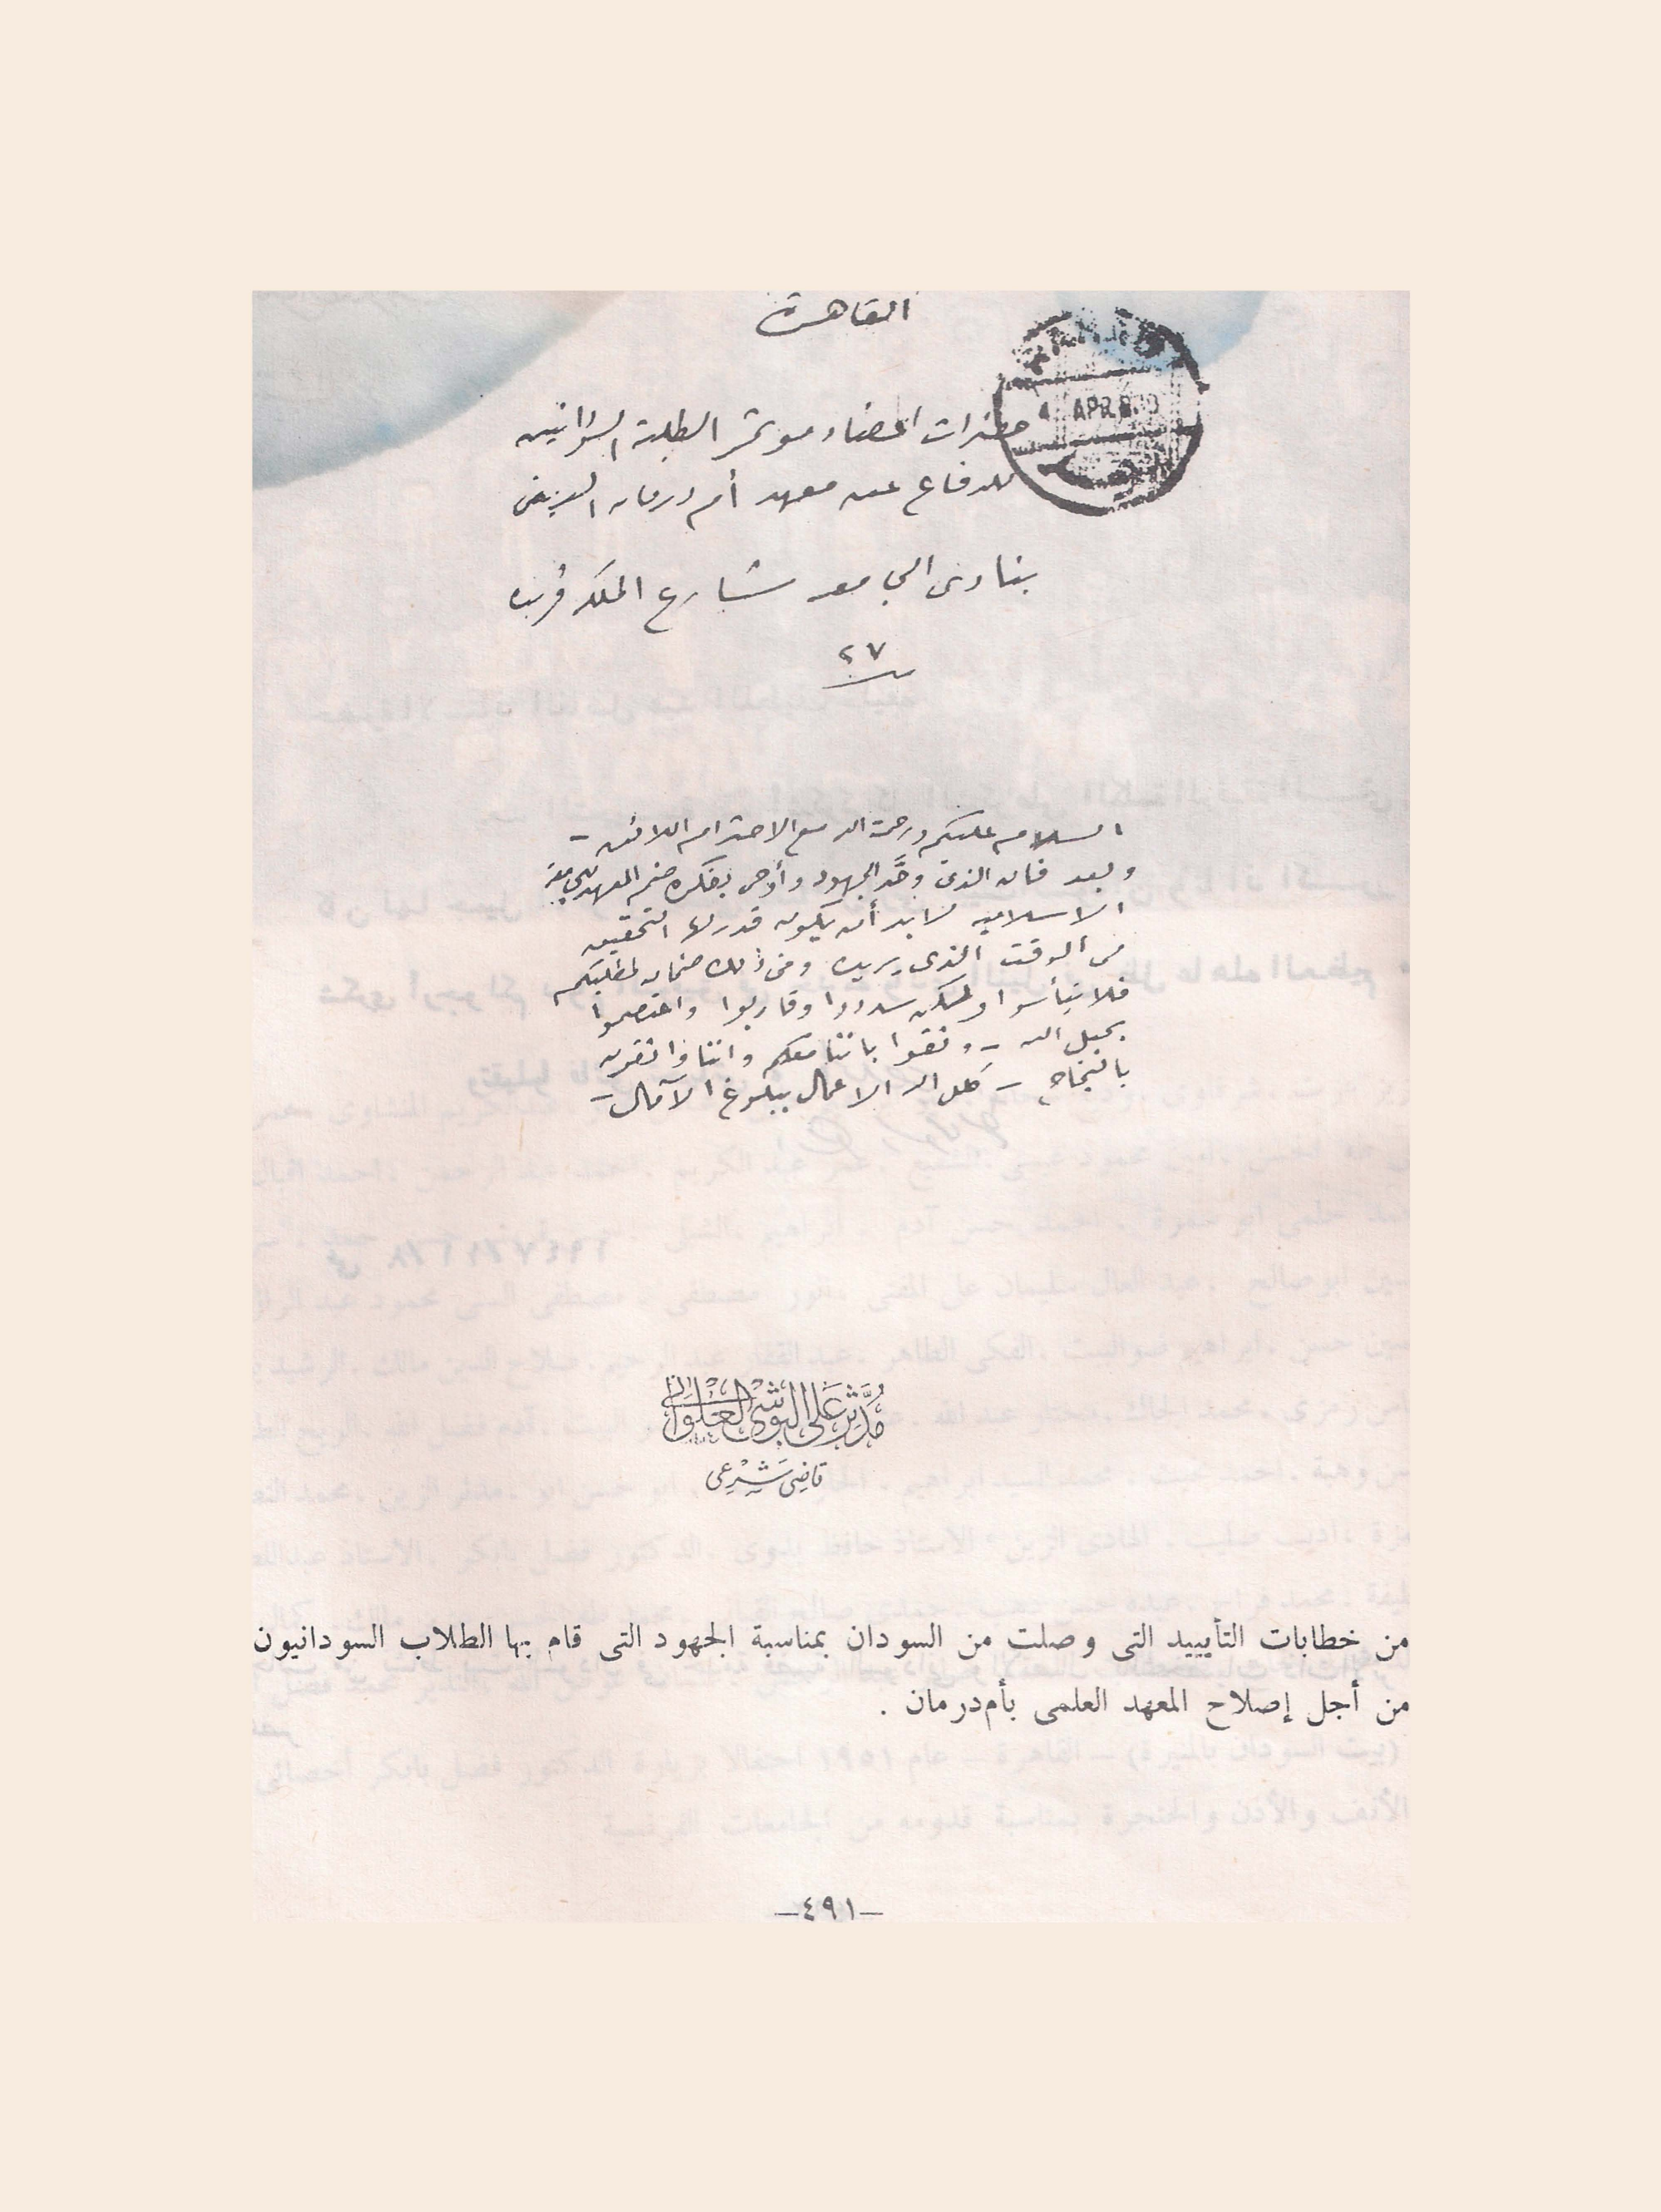 القاهرة
4 APR
حضرات أعضاء مؤتمر الطلبة السودانيين
للدفاع عن معهد أم درمان العريض
بنادى الجامعه شارع الملكه فريده
٢٧
السلام عليكم ورحمة الله مع الاحترام اللائق –
وبعد فان الذى وحَّد الجهود وأوحى بفكرة ضم المعهد للجامعة
الاسلاميه لا بد أن يكون قدر لها التحقيق
فى الوقت الذى يريده وفى ذلك ضمان لمطلبكم
فلا تيأسوا ولكن سددوا وقاربوا واعتصموا
بحبل الله – وثقوا باننا معكم واننا واثقون
بالنجاح – كلل الله الاعمال ببلوغ الآمال –
مُدَّثِر عَلى البوشى العَلوابى
قاضى شرعى
من خطابات التأييد التى وصلت من السودان بمناسبة الجهود التى قام بها الطلاب السودانيون
من أجل إصلاح المعهد العلمى بأم‌درمان .
–٤٩١–